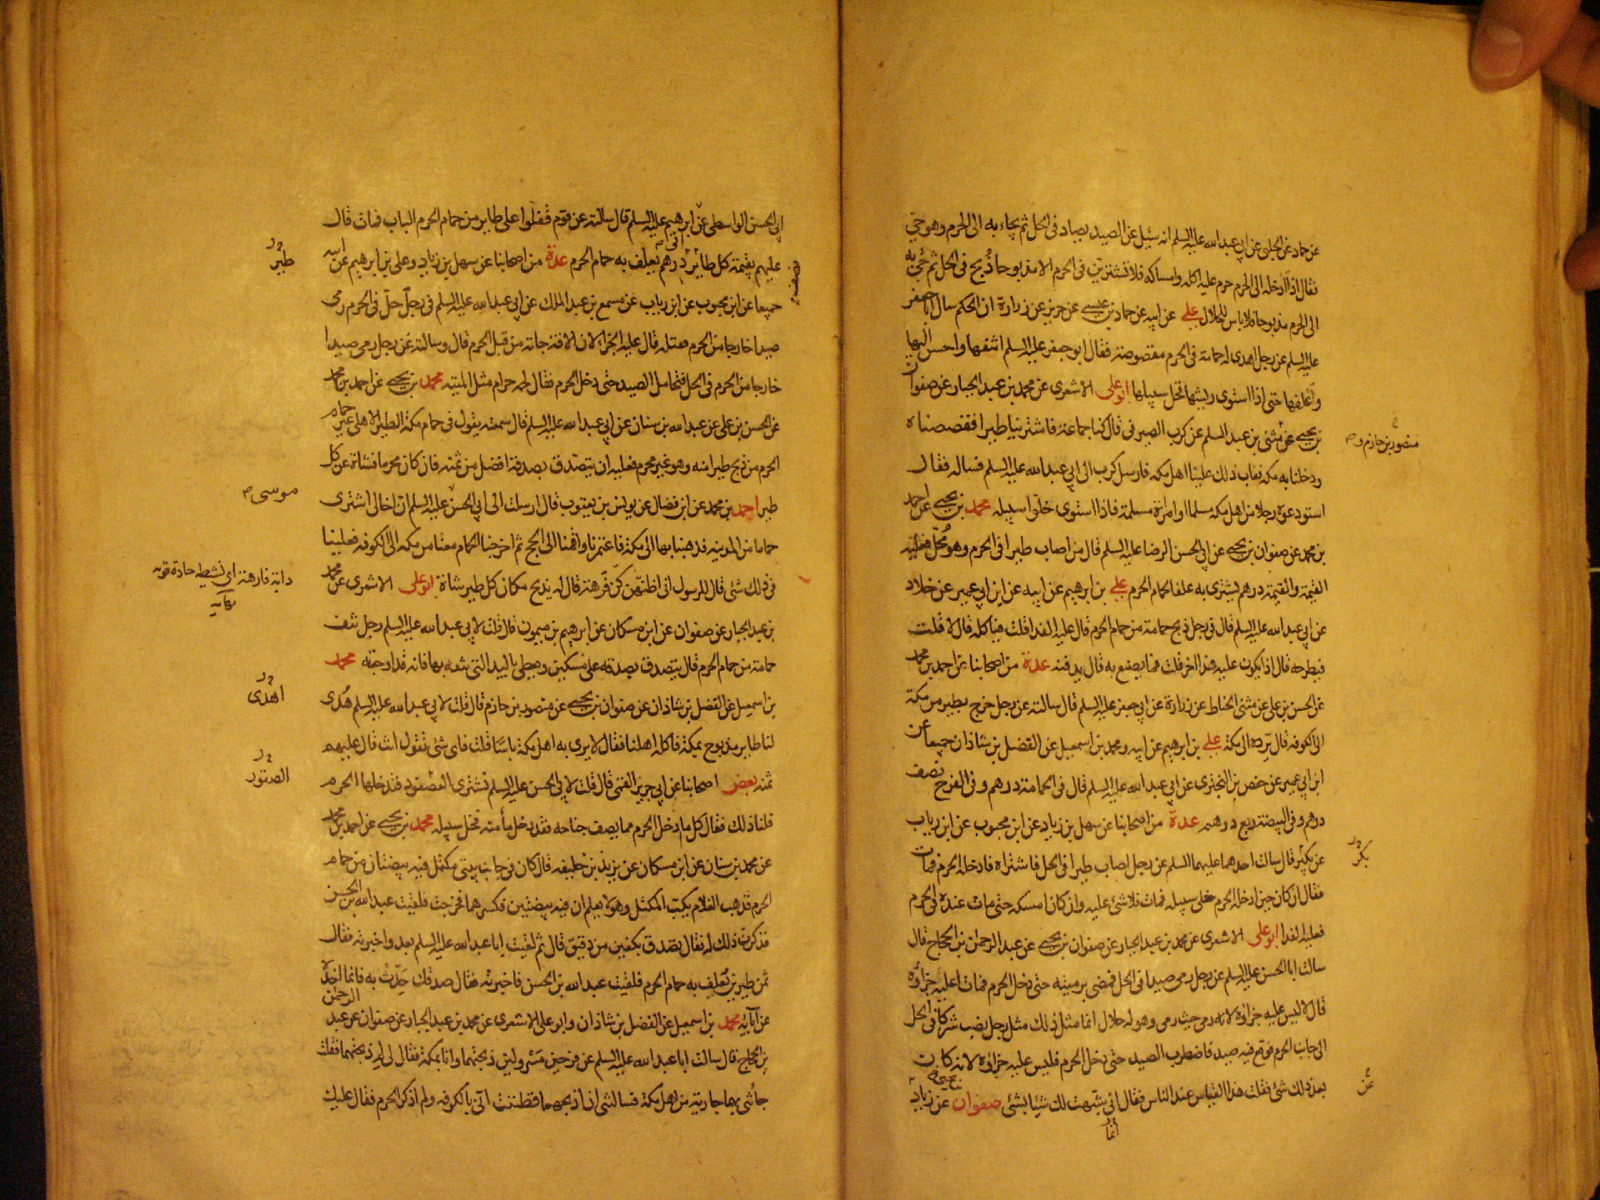 عن حماد عن الحلبي عن ابي عبد الله عليه السلم انه سئل عن الصيد يصاد في الحل ثم يجاء به الى الحرم وهو حي
فقال اذا ادخله الى الحرم حرم عليه اكله وامساكه فلا تشترين في الحرم الا مذبوحا ذبح في الحل ثم جئ به
الى الحرم مذبوحا فلا باس للحلال علي عن ابيه عن حماد بن عيسى عن حريز عن زرارة ان الحكم سال ابا جعفر
عليه السلم عن رجل اهدى له حمامة في الحرم مقصوصة فقال ابو جعفر عليه السلم انتفها واحسن اليها
واعلفها حتى اذا استوى ريشها فخل سبيلها ابو علي الاشعري عن محمد بن عبد الجبار عن صفوان
بن يحيى عن مثنى بن عبد السلم عن كرب الصيرفي قال كنا جماعة فاشترينا طيرا فقصصناه
ودخلنا به مكة فعاب ذلك علينا اهل مكة فارسل كرب الى ابي عبد الله عليه السلم فساله فقال
استودعوه رجلا من اهل مكة مسلما او امراة مسلمة فاذا استوى خلوا سبيله محمد بن يحيى عن احمد
بن محمد عن صفوان بن يحيى عن ابي الحسن الرضا عليه السلم قال من اصاب طيرا في الحرم وهو محل فعليه
القيمة والقيمة درهم يشترى به علفا لحمام الحرم علي بن ابرهيم عن ابيه عن ابن ابي عمير عن خلاد
عن ابي عبد الله عليه السلم قال في رجل ذبح حمامة من حمام الحرم قال عليه الفدا قلت فياكله قال لا قلت
فيطرحه قال اذا يكون عليه فدا اخر قلت فما يصنع به قال يدفنه عدة من اصحابنا عن احمد بن محمد
عن الحسن بن علي عن مثنى الحناط عن زرارة عن ابي جعفر عليه السلم قال سالته عن رجل خرج بطير من مكة
الى الكوفه قال يرده الى مكة علي بن ابرهيم عن ابيه ومحمد بن اسمعيل عن الفضل بن شاذان جميعا عن
ابن ابي عمير عن حفص بن البختري عن ابي عبد الله عليه السلم قال في الحمامة درهم وفي الفرخ نصف
درهم وفي البيضة ربع درهم عدة من اصحابنا عن سهل بن زياد عن ابن محبوب عن ابن رياب
عن بكير قال سالت احدهما عليهما السلم عن رجل اصاب طيرا في الحل فاشتراه فادخله الحرم فمات
فقال ان كان حين ادخله الحرم خلى سبيله فمات فلا شئ عليه وان كان امسكه حتى مات عنده في الحرم
فعليه الفدا ابو علي الاشعري عن محمد بن عبد الجبار عن صفوان بن يحيى عن عبد الرحمن بن الحجاج قال
سالت ابا الحسن عليه السلم عن رجل رمى صيدا في الحل فمضى برميته حتى دخل الحرم فمات اعليه جزاؤه
قال لا ليس عليه جزاؤه لانه رمى حيث رمى وهو له حلال انما مثل ذلك مثل رجل نصب شركا في الحل
الى جانب الحرم فوقع فيه صيد فاضطرب الصيد حتى دخل الحرم فليس عليه جزاؤه لانه كان
بعد ذلك شئ فقلت هذا القياس عند الناس فقال انما شبهت لك شيئا بشئ صفوان عن زياد
منصور بن حازم
بكر
عن
انما
ابي الحسن الواسطي عن ابرهيم عليه السلم قال سالته عن قوم قفلوا على طاير من حمام الحرم الباب فمات قال
عليهم بقيمة كل طاير درهم يعلف به حمام الحرم عدة من اصحابنا عن سهل بن زياد وعلي بن ابرهيم عن ابيه
جميعا عن ابن محبوب عن ابن رياب عن مسمع بن عبد الملك عن ابي عبد الله عليه السلم في رجل حل في الحرم رمى
صيدا خارجا من الحرم فقتله قال عليه الجزاء لان الافة جاءته من قبل الحرم قال وسالته عن رجل رمى صيدا
خارجا من الحرم في الحل فتحامل الصيد حتى دخل الحرم فقال لحمه حرام مثل الميتة محمد بن يحيى عن احمد بن محمد
عن الحسن بن علي عن عبد الله بن سنان عن ابي عبد الله عليه السلم قال سمعته يقول في حمام مكة الطير الاهلي غير حمام
الحرم من ذبح طيرا منه وهو غير محرم فعليه ان يتصدق بصدقة افضل من ثمنه فان كان محرما فشاة عن كل
طير احمد بن محمد عن ابن فضال عن يونس بن يعقوب قال ارسلت الى ابي الحسن عليه السلم ان اخا لي اشترى
حماما من المدينه فذهبنا بها الى مكة فاعتمرنا واقمنا الى الحج ثم اخرجنا الحمام معنا من مكة الى الكوفه فعلينا
في ذلك شئ قال للرسول اني اظنهن كن فرهة قال له يذبح مكان كل طير شاة ابو علي الاشعري عن محمد
بن عبد الجبار عن صفوان عن ابن مسكان عن ابرهيم بن ميمون قال قلت لابي عبد الله عليه السلم رجل نتف
حمامة من حمام الحرم قال يتصدق بصدقه على مسكين ويعطي باليد التي نتف بها فانه قد اوجعه محمد
بن اسمعيل عن الفضل بن شاذان عن صفوان بن يحيى عن منصور بن حازم قال قلت لابي عبد الله عليه السلم هدى
لنا طاير مذبوح بمكة فاكله اهلنا فقال لا يرى به اهل مكة باسا قلت فاى شئ تقول انت قال عليهم
ثمنه بعض اصحابنا عن ابي جرير القمي قال قلت لابي الحسن عليه السلم نشتري الصقور فندخلها الحرم
فلنا ذلك فقال كل ما دخل الحرم مما يصف جناحه فقد دخل مأمنه فخل سبيله محمد بن يحيى عن احمد بن محمد
عن محمد بن سنان عن ابن مسكان عن يزيد بن خليفه قال كان في جانب بيتي مكتل فيه بيضتان من حمام
الحرم فذهب الغلام يكب المكتل وهو لا يعلم ان فيه بيضتين فكسرهما فخرجت فلقيت عبد الله بن الحسن
فذكرت ذلك له فقال تصدق بكفين من دقيق قال ثم لقيت ابا عبد الله عليه السلم بعد واخبرته فقال
ثمن طيرين تعلف به حمام الحرم فلقيت عبد الله بن الحسن فاخبرته فقال صدقك حدث به فانما اخذه
عن ابائه محمد بن اسمعيل عن الفضل بن شاذان وابو علي الاشعري عن محمد بن عبد الجبار عن صفوان عن عبد الرحمن
بن الحجاج قال سالت ابا عبد الله عليه السلم عن فرخين مسرولين ذبحتهما وانا بمكة فقال لي لم ذبحتهما فقلت
جاءتني بهما جارية من اهل مكة فسالتني ان اذبحهما فظننت اني بالكوفه ولم اذكر الحرم فقال عليك
طير
موسى
دابة فارهة اي نشيطة حادة قوية
نهاية
اهدى
الصقور